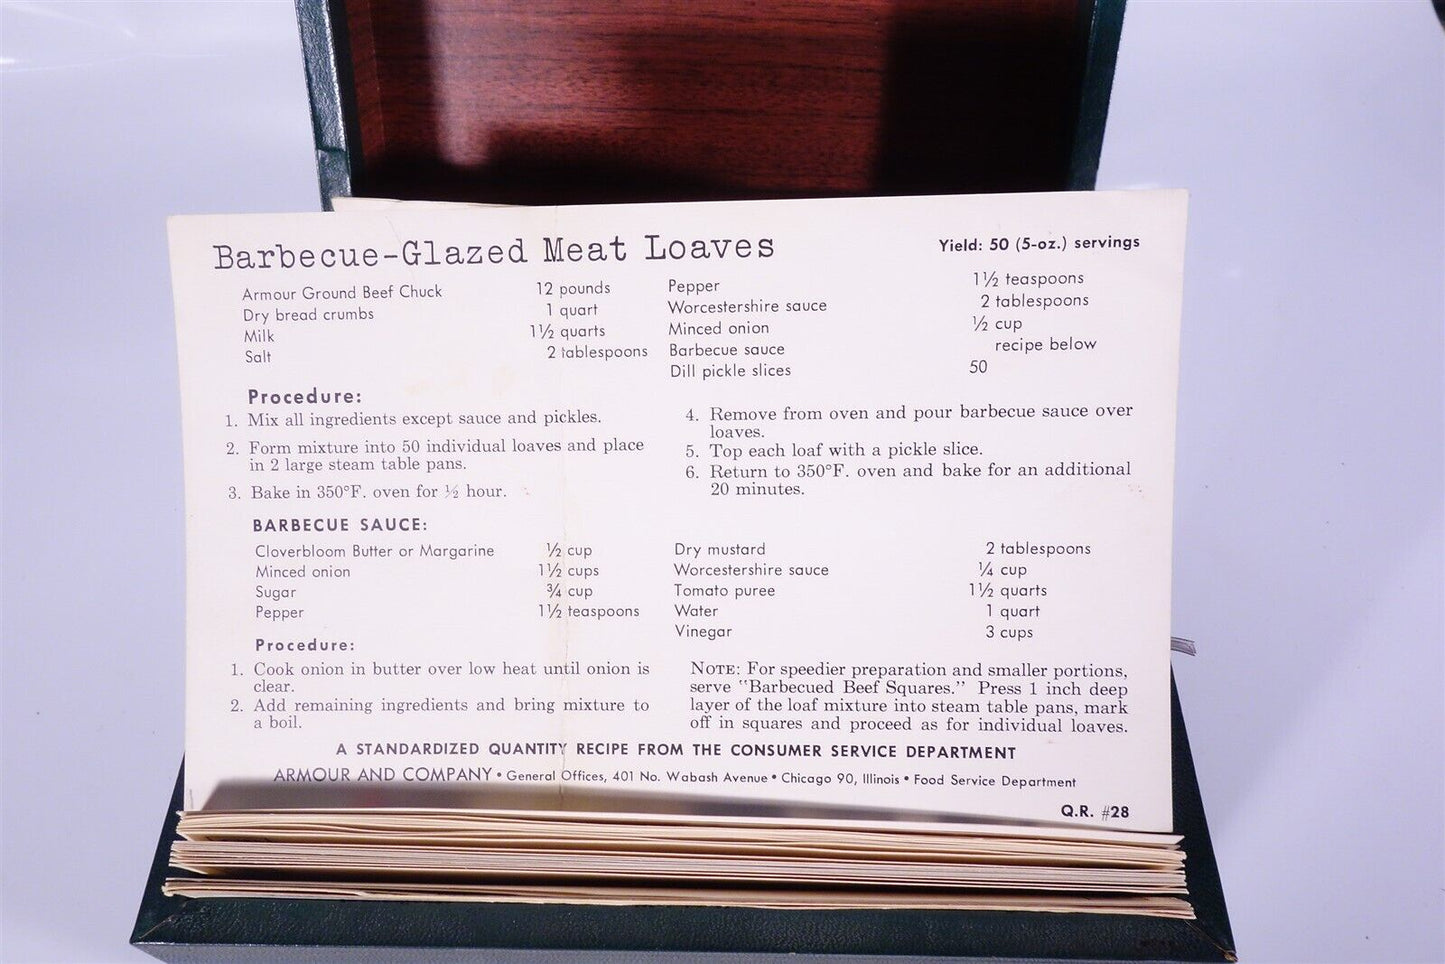 Barbecue-Glazed Meat Loaves
Yield: 50 (5-oz.) servings
Armour Ground Beef Chuck 12 pounds
Dry bread crumbs 1 quart
Milk 1½ quarts
Salt 2 tablespoons
Pepper 1½ teaspoons
Worcestershire sauce 2 tablespoons
Minced onion ½ cup
Barbecue sauce recipe below
Dill pickle slices 50
Procedure:
1. Mix all ingredients except sauce and pickles.
2. Form mixture into 50 individual loaves and place
in 2 large steam table pans.
3. Bake in 350°F. oven for ½ hour.
4. Remove from oven and pour barbecue sauce over
loaves.
5. Top each loaf with a pickle slice.
6. Return to 350°F. oven and bake for an additional
20 minutes.
BARBECUE SAUCE:
Cloverbloom Butter or Margarine ½ cup
Minced onion 1½ cups
Sugar ¾ cup
Pepper 1½ teaspoons
Dry mustard 2 tablespoons
Worcestershire sauce ¼ cup
Tomato puree 1½ quarts
Water 1 quart
Vinegar 3 cups
Procedure:
1. Cook onion in butter over low heat until onion is
clear.
2. Add remaining ingredients and bring mixture to
a boil.
NOTE: For speedier preparation and smaller portions,
serve "Barbecued Beef Squares." Press 1 inch deep
layer of the loaf mixture into steam table pans, mark
off in squares and proceed as for individual loaves.
A STANDARDIZED QUANTITY RECIPE FROM THE CONSUMER SERVICE DEPARTMENT
ARMOUR AND COMPANY • General Offices, 401 No. Wabash Avenue • Chicago 90, Illinois • Food Service Department
Q.R. #28